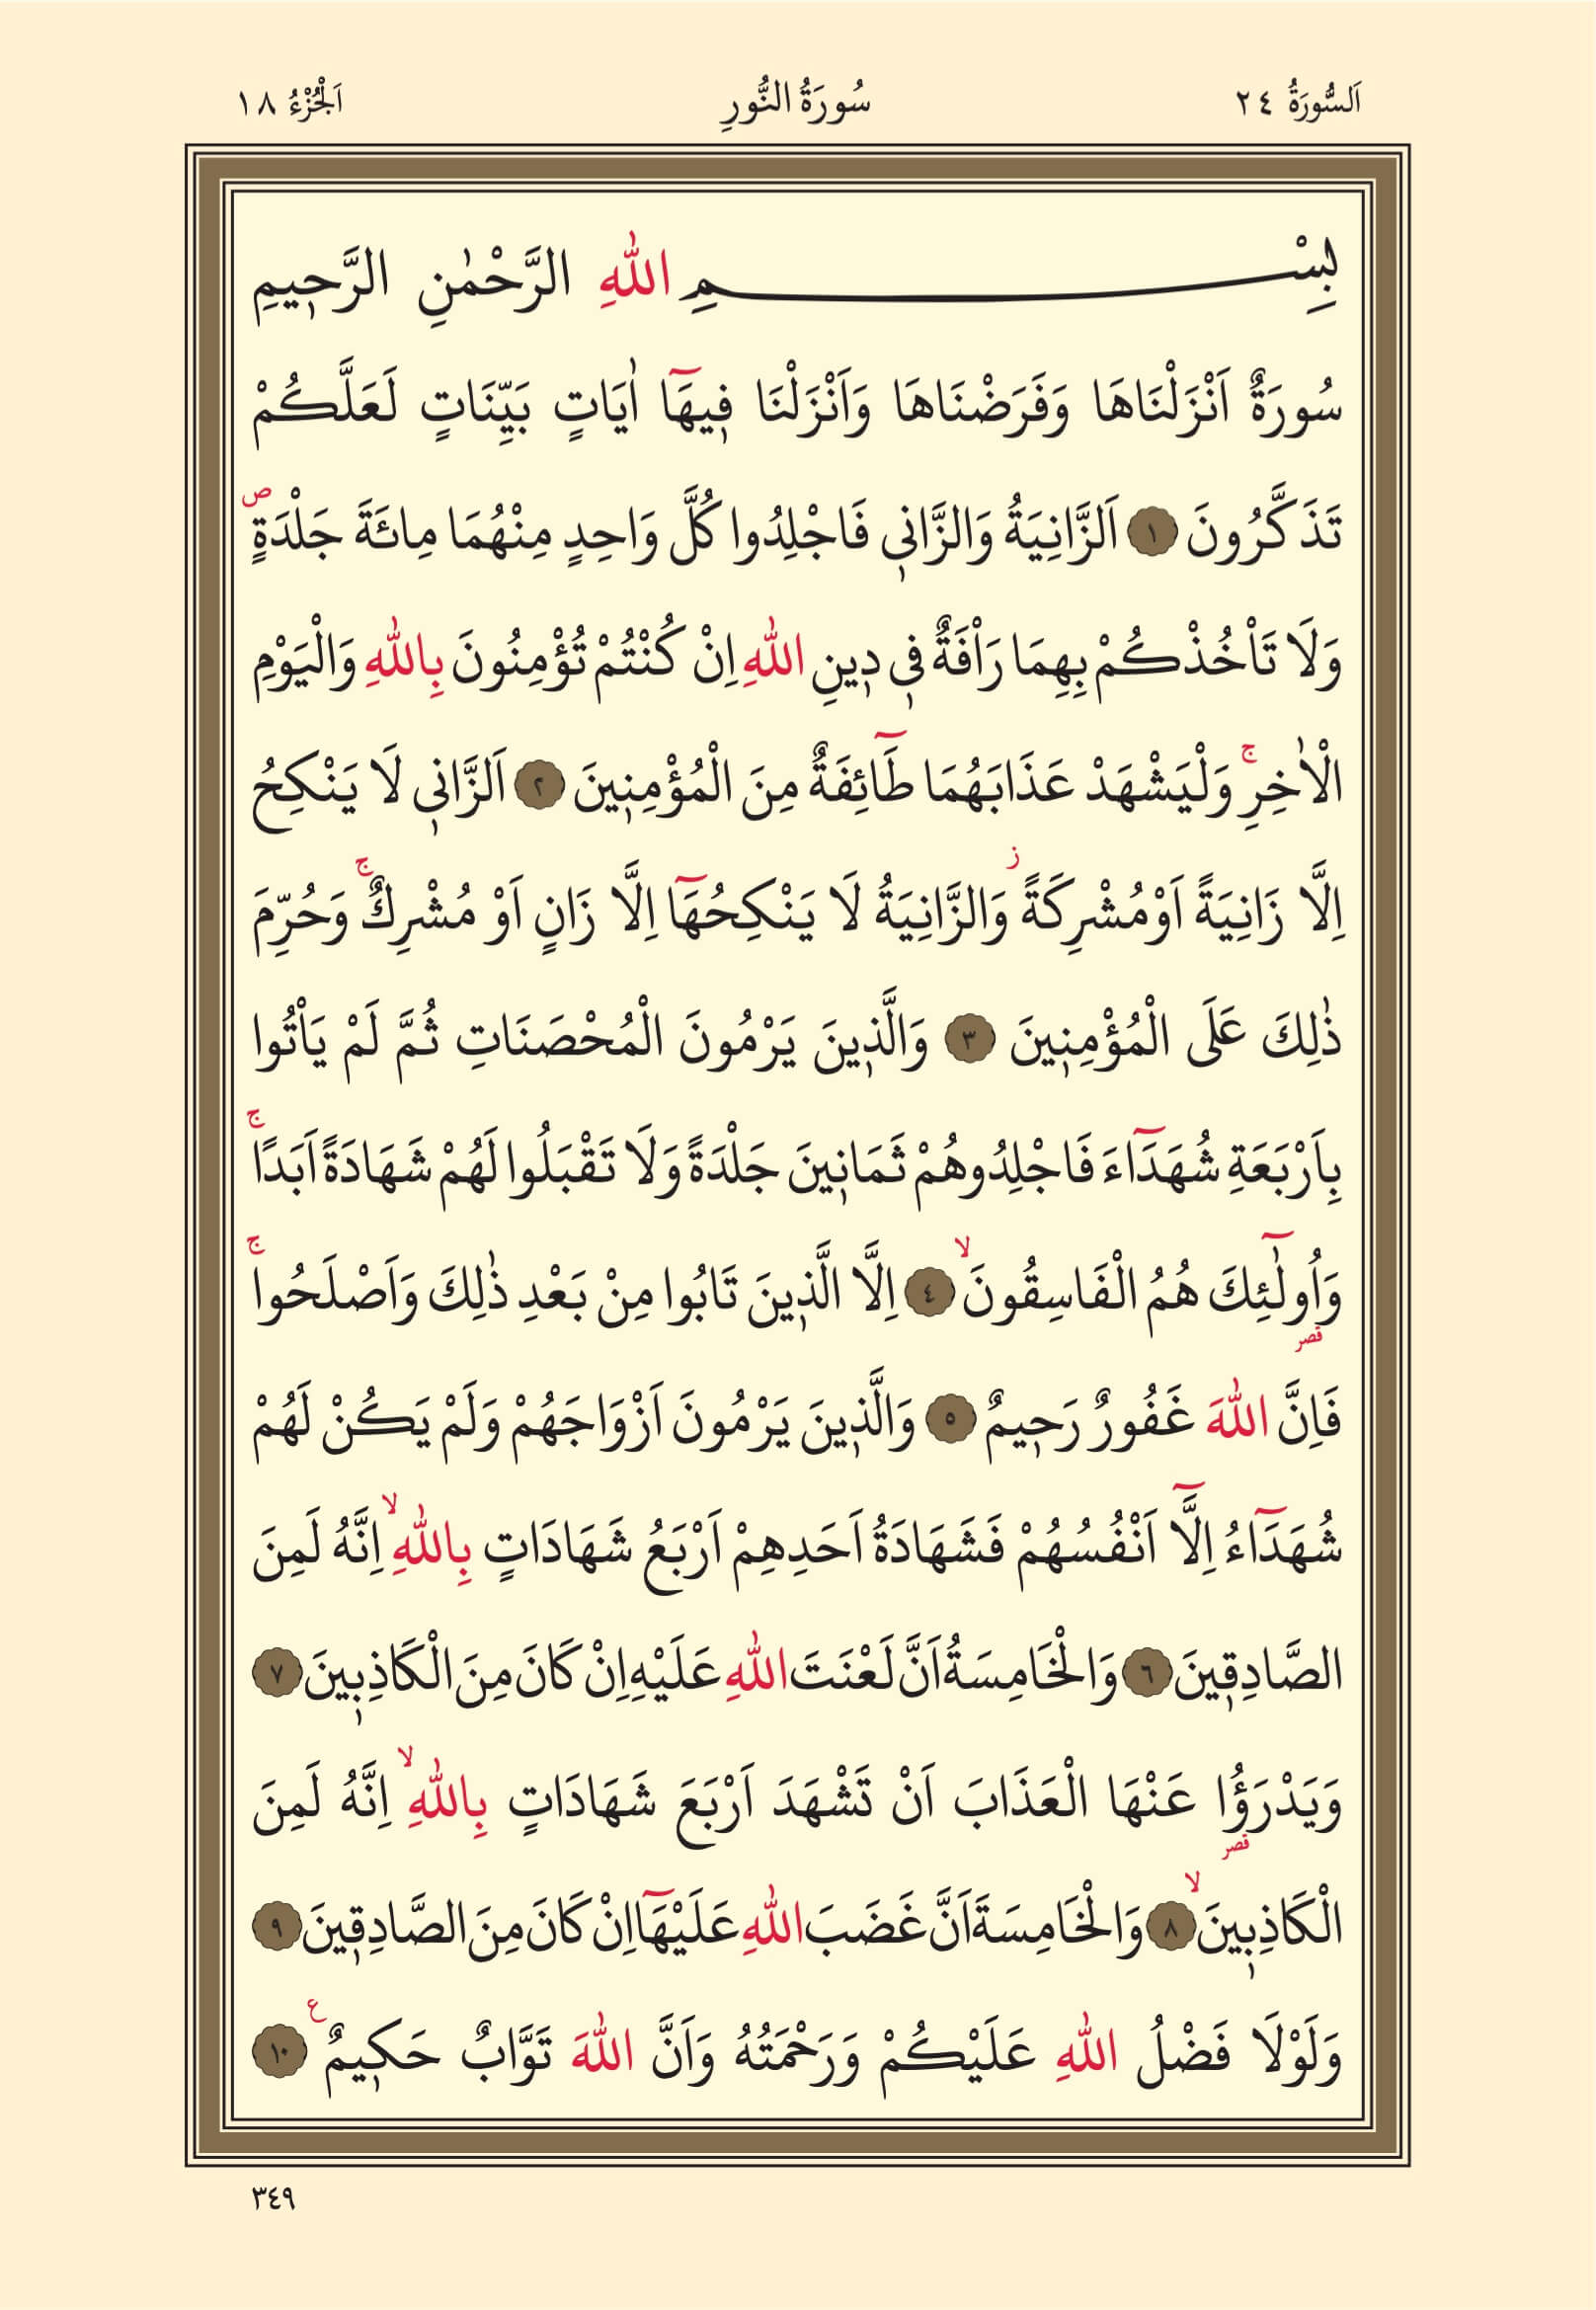 اَلسُّورَةُ ٢٤ سُورَةُ النُّورِ اَلْجُزْءُ ١٨
بِسْمِ اللّٰهِ الرَّحْمٰنِ الرَّح۪يمِ
سُورَةٌ اَنْزَلْنَاهَا وَفَرَضْنَاهَا وَاَنْزَلْنَا ف۪يهَٓا اٰيَاتٍ بَيِّنَاتٍ لَعَلَّكُمْ
تَذَكَّرُونَ ﴿١﴾ اَلزَّانِيَةُ وَالزَّان۪ي فَاجْلِدُوا كُلَّ وَاحِدٍ مِنْهُمَا مِائَةَ جَلْدَةٍۖ
وَلَا تَأْخُذْكُمْ بِهِمَا رَأْفَةٌ ف۪ي د۪ينِ اللّٰهِ اِنْ كُنْتُمْ تُؤْمِنُونَ بِاللّٰهِ وَالْيَوْمِ
الْاٰخِرِۚ وَلْيَشْهَدْ عَذَابَهُمَا طَٓائِفَةٌ مِنَ الْمُؤْمِن۪ينَ ﴿٢﴾ اَلزَّان۪ي لَا يَنْكِحُ
اِلَّا زَانِيَةً اَوْ مُشْرِكَةًؗ وَالزَّانِيَةُ لَا يَنْكِحُهَٓا اِلَّا زَانٍ اَوْ مُشْرِكٌۚ وَحُرِّمَ
ذٰلِكَ عَلَى الْمُؤْمِن۪ينَ ﴿٣﴾ وَالَّذ۪ينَ يَرْمُونَ الْمُحْصَنَاتِ ثُمَّ لَمْ يَأْتُوا
بِاَرْبَعَةِ شُهَدَٓاءَ فَاجْلِدُوهُمْ ثَمَان۪ينَ جَلْدَةً وَلَا تَقْبَلُوا لَهُمْ شَهَادَةً اَبَدًاۚ
وَاُو۬لٰٓئِكَ هُمُ الْفَاسِقُونَۙ ﴿٤﴾ اِلَّا الَّذ۪ينَ تَابُوا مِنْ بَعْدِ ذٰلِكَ وَاَصْلَحُواۚ
قصر
فَاِنَّ اللّٰهَ غَفُورٌ رَح۪يمٌ ﴿٥﴾ وَالَّذ۪ينَ يَرْمُونَ اَزْوَاجَهُمْ وَلَمْ يَكُنْ لَهُمْ
شُهَدَٓاءُ اِلَّٓا اَنْفُسُهُمْ فَشَهَادَةُ اَحَدِهِمْ اَرْبَعُ شَهَادَاتٍ بِاللّٰهِۙ اِنَّهُ لَمِنَ
الصَّادِق۪ينَ ﴿٦﴾ وَالْخَامِسَةُ اَنَّ لَعْنَتَ اللّٰهِ عَلَيْهِ اِنْ كَانَ مِنَ الْكَاذِب۪ينَ ﴿٧﴾
وَيَدْرَؤُا عَنْهَا الْعَذَابَ اَنْ تَشْهَدَ اَرْبَعَ شَهَادَاتٍ بِاللّٰهِۙ اِنَّهُ لَمِنَ
قصر
الْكَاذِب۪ينَۙ ﴿٨﴾ وَالْخَامِسَةَ اَنَّ غَضَبَ اللّٰهِ عَلَيْهَٓا اِنْ كَانَ مِنَ الصَّادِق۪ينَ ﴿٩﴾
وَلَوْلَا فَضْلُ اللّٰهِ عَلَيْكُمْ وَرَحْمَتُهُ وَاَنَّ اللّٰهَ تَوَّابٌ حَك۪يمٌ ع ﴿١٠﴾
٣٤٩